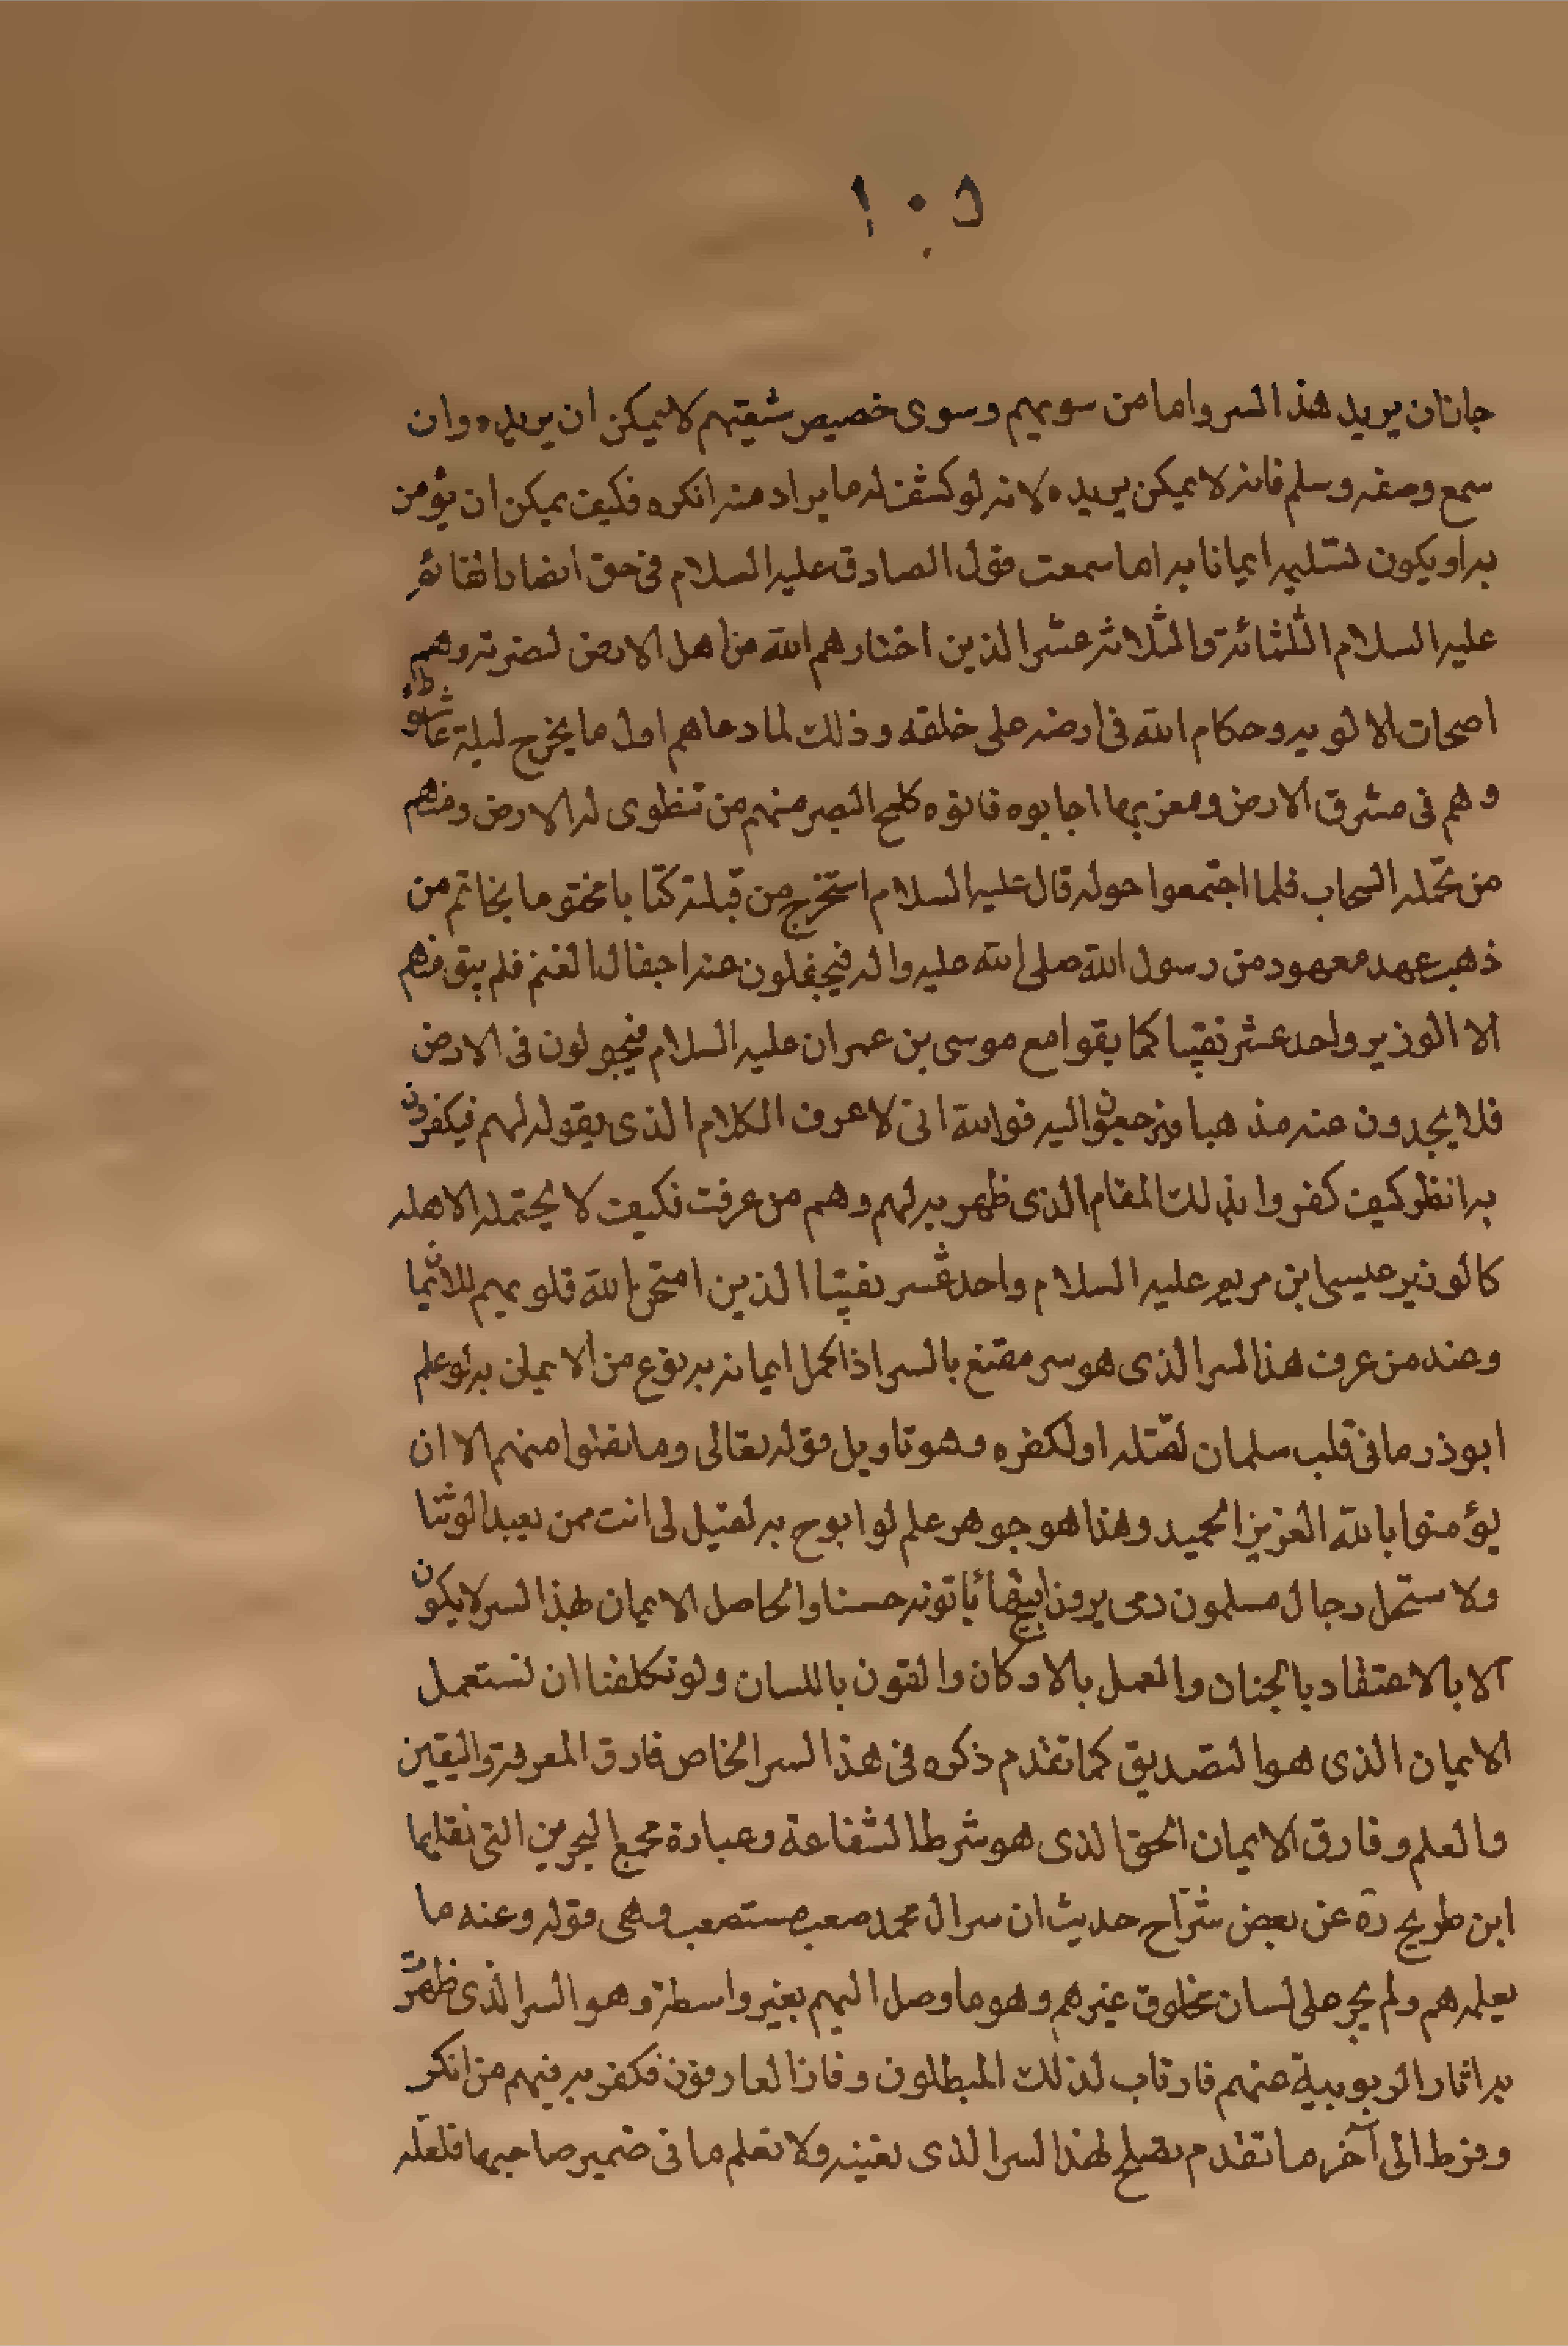 ١٠٥
جانان يريد هذا السر واما من سويهم وسوى خصيص شيعتهم لا يمكن ان يريده وان
سمع وصفه وسلم فانه لا يمكن يريده لانه لو كشف له ما يراد منه انكره فكيف يمكن ان يؤمن
به او يكون لتسليمه ايمانا به اما سمعت قول الصادق عليه السلام فى حق انصار القائم
عليه السلام الثلثمائة والثلاثة عشر الذين اختارهم الله من اهل الارض لنصرته وهم
اصحاب الالويه وحكام الله فى ارضه على خلقه وذلك لما دعاهم اول ما يخرج ليلة عاشوراء
وهم فى مشرق الارض ومغربها اجابوه فاتوه كلمح البصر منهم من تنطوى له الارض ومنهم
من تحمله السحاب فلما اجتمعوا حوله قال عليه السلام استخرج من قبلته كتابا مختوما بخاتم من
ذهب عهد معهود من رسول الله صلى الله عليه واله فيجفلون عنه اجفال الغنم فلم يبق منهم
الا الوزير واحد عشر نقيبا كما بقوا مع موسى بن عمران عليه السلام فيجولون فى الارض
فلا يجدون عنه مذهبا فيرجعون اليه فوالله انى لاعرف الكلام الذى يقوله لهم فيكفرون
به انظر كيف كفروا بذلك المقام الذى ظهر به لهم وهم من عرفت فكيف لا يحتمله الا اهله
كالوزير عيسى ابن مريم عليه السلام واحد عشر نقيبا الذين امتحن الله قلوبهم للايمان
وعند من عرف هذا السر الذى هو سر مقنع بالسر اذا كمل ايمانه به نوع من الايمان به لو علم
ابوذر ما فى قلب سلمان لقتله او لكفره وهو تاويل قوله تعالى وما نقموا منهم الا ان
يؤمنوا بالله العزيز الحميد وهذا هو جوهر علم لو ابوح به لقيل لى انت ممن يعبد الوثنا
ولاستحل رجال مسلمون دمى يرون اقبح ما ياتونه حسنا والحاصل الايمان لهذا السر لا يكون
الا بالاعتقاد بالجنان والعمل بالاركان والقول باللسان ولو تكلفنا ان نستعمل
الايمان الذى هو التصديق كما تقدم ذكره فى هذا السر الخاص فارق المعرفة واليقين
والعلم وفارق الايمان الحق الذى هو شرط الشفاعة وعبارة مجمع البحرين التى نقلها
ابن طريح ره عن بعض شراح حديث ان سر ال محمد صعب مستصعب وهى قوله وعنه ما
يعلمه هم ولم يجر على لسان مخلوق غيرهم وهو ما وصل اليهم بغير واسطة وهو السر الذى ظهرت
به اثار الربوبية عنهم فارتاب لذلك المبطلون وفاز العارفون فكفر به فيهم من انكر
وفرط الى آخر ما تقدم يصلح لهذا السر الذى نعنيه ولا نعلم ما فى ضمير صاحبها فلعله